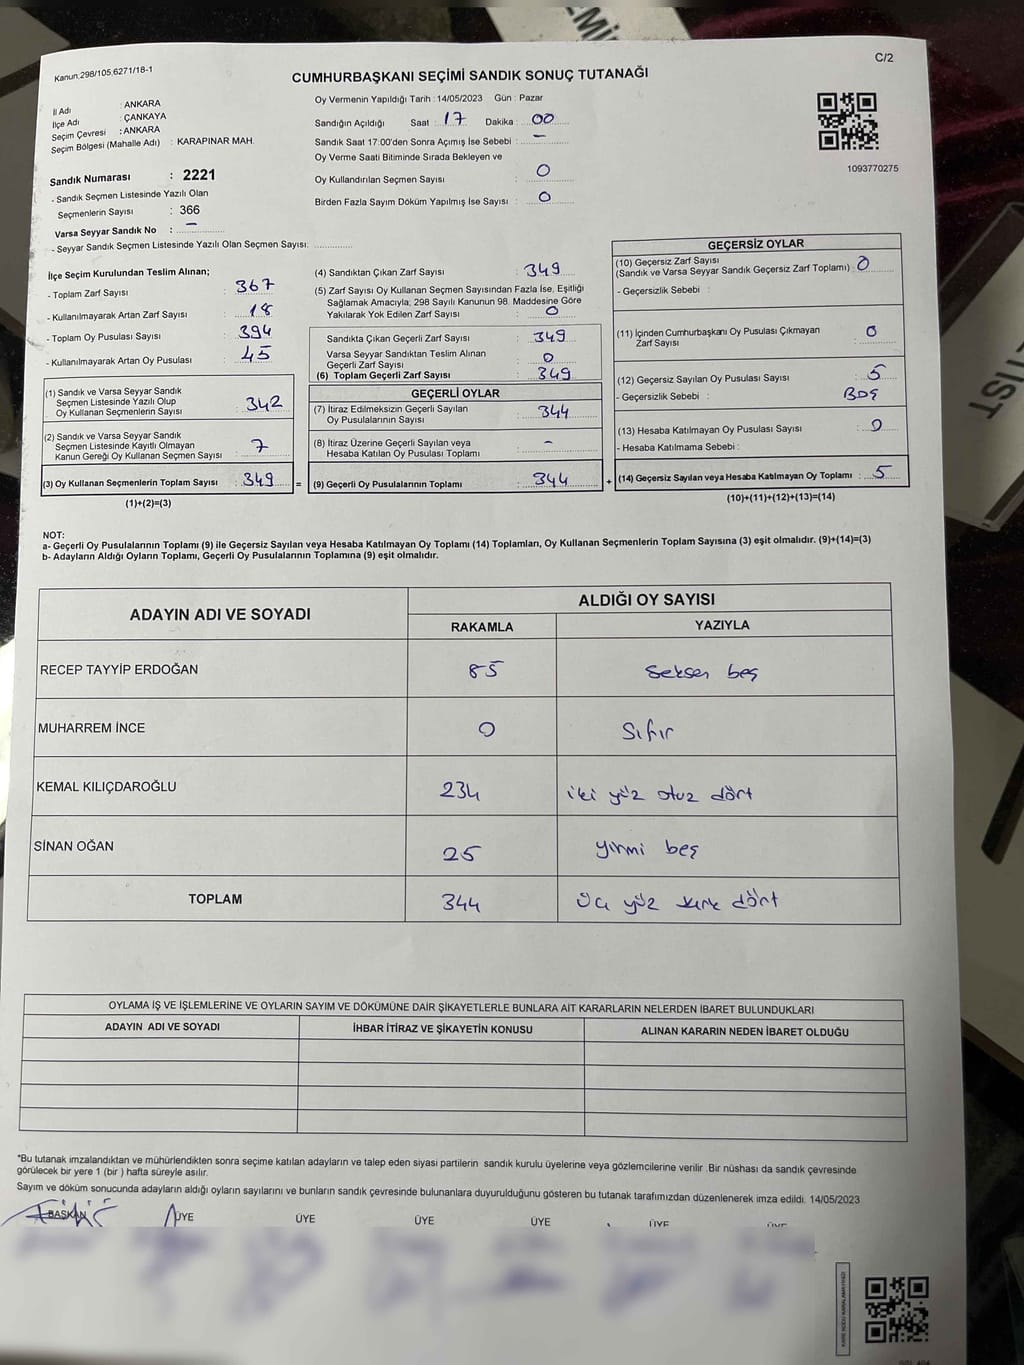 C/2
Kanun;298/105;6271/18-1
CUMHURBAŞKANI SEÇİMİ SANDIK SONUÇ TUTANAĞI
İl Adı : ANKARA
İlçe Adı : ÇANKAYA
Seçim Çevresi : ANKARA
Seçim Bölgesi (Mahalle Adı) : KARAPINAR MAH.
Sandık Numarası : 2221
- Sandık Seçmen Listesinde Yazılı Olan
Seçmenlerin Sayısı : 366
Varsa Seyyar Sandık No : –
- Seyyar Sandık Seçmen Listesinde Yazılı Olan Seçmen Sayısı:
Oy Vermenin Yapıldığı Tarih : 14/05/2023 Gün : Pazar
Sandığın Açıldığı Saat : 17 Dakika : 00
Sandık Saat 17:00'den Sonra Açımış İse Sebebi : –
Oy Verme Saati Bitiminde Sırada Bekleyen ve
Oy Kullandırılan Seçmen Sayısı : 0
Birden Fazla Sayım Döküm Yapılmış İse Sayısı : 0
1093770275
İlçe Seçim Kurulundan Teslim Alınan;
- Toplam Zarf Sayısı : 367
- Kullanılmayarak Artan Zarf Sayısı : 18
- Toplam Oy Pusulası Sayısı : 394
- Kullanılmayarak Artan Oy Pusulası : 45
(1) Sandık ve Varsa Seyyar Sandık
Seçmen Listesinde Yazılı Olup
Oy Kullanan Seçmenlerin Sayısı : 342
(2) Sandık ve Varsa Seyyar Sandık
Seçmen Listesinde Kayıtlı Olmayan
Kanun Gereği Oy Kullanan Seçmen Sayısı : 7
(3) Oy Kullanan Seçmenlerin Toplam Sayısı : 349 =
(1)+(2)=(3)
(4) Sandıktan Çıkan Zarf Sayısı : 349
(5) Zarf Sayısı Oy Kullanan Seçmen Sayısından Fazla İse, Eşitliği
Sağlamak Amacıyla; 298 Sayılı Kanunun 98. Maddesine Göre
Yakılarak Yok Edilen Zarf Sayısı : 0
Sandıkta Çıkan Geçerli Zarf Sayısı : 349
Varsa Seyyar Sandıktan Teslim Alınan
Geçerli Zarf Sayısı : 0
(6) Toplam Geçerli Zarf Sayısı : 349
GEÇERLİ OYLAR
(7) İtiraz Edilmeksizin Geçerli Sayılan
Oy Pusulalarının Sayısı : 344
(8) İtiraz Üzerine Geçerli Sayılan veya
Hesaba Katılan Oy Pusulası Toplamı : –
(9) Geçerli Oy Pusulalarının Toplamı : 344 +
GEÇERSİZ OYLAR
(10) Geçersiz Zarf Sayısı
(Sandık ve Varsa Seyyar Sandık Geçersiz Zarf Toplamı) : 0
- Geçersizlik Sebebi :
(11) İçinden Cumhurbaşkanı Oy Pusulası Çıkmayan
Zarf Sayısı : 0
(12) Geçersiz Sayılan Oy Pusulası Sayısı : 5
- Geçersizlik Sebebi : BOŞ
(13) Hesaba Katılmayan Oy Pusulası Sayısı : 0
- Hesaba Katılmama Sebebi :
(14) Geçersiz Sayılan veya Hesaba Katılmayan Oy Toplamı : 5
(10)+(11)+(12)+(13)=(14)
NOT:
a- Geçerli Oy Pusulalarının Toplamı (9) ile Geçersiz Sayılan veya Hesaba Katılmayan Oy Toplamı (14) Toplamları, Oy Kullanan Seçmenlerin Toplam Sayısına (3) eşit olmalıdır. (9)+(14)=(3)
b- Adayların Aldığı Oyların Toplamı, Geçerli Oy Pusulalarının Toplamına (9) eşit olmalıdır.
ADAYIN ADI VE SOYADI ALDIĞI OY SAYISI
RAKAMLA YAZIYLA
RECEP TAYYİP ERDOĞAN 85 seksen beş
MUHARREM İNCE 0 Sıfır
KEMAL KILIÇDAROĞLU 234 iki yüz otuz dört
SİNAN OĞAN 25 yirmi beş
TOPLAM 344 üç yüz kırk dört
OYLAMA İŞ VE İŞLEMLERİNE VE OYLARIN SAYIM VE DÖKÜMÜNE DAİR ŞİKAYETLERLE BUNLARA AİT KARARLARIN NELERDEN İBARET BULUNDUKLARI
ADAYIN ADI VE SOYADI İHBAR İTİRAZ VE ŞİKAYETİN KONUSU ALINAN KARARIN NEDEN İBARET OLDUĞU
*Bu tutanak imzalandıktan ve mühürlendikten sonra seçime katılan adayların ve talep eden siyasi partilerin sandık kurulu üyelerine veya gözlemcilerine verilir .Bir nüshası da sandık çevresinde
görülecek bir yere 1 (bir ) hafta süreyle asılır.
Sayım ve döküm sonucunda adayların aldığı oyların sayılarını ve bunların sandık çevresinde bulunanlara duyurulduğunu gösteren bu tutanak tarafımızdan düzenlenerek imza edildi. 14/05/2023
BAŞKAN ÜYE ÜYE ÜYE ÜYE ÜYE ÜYE